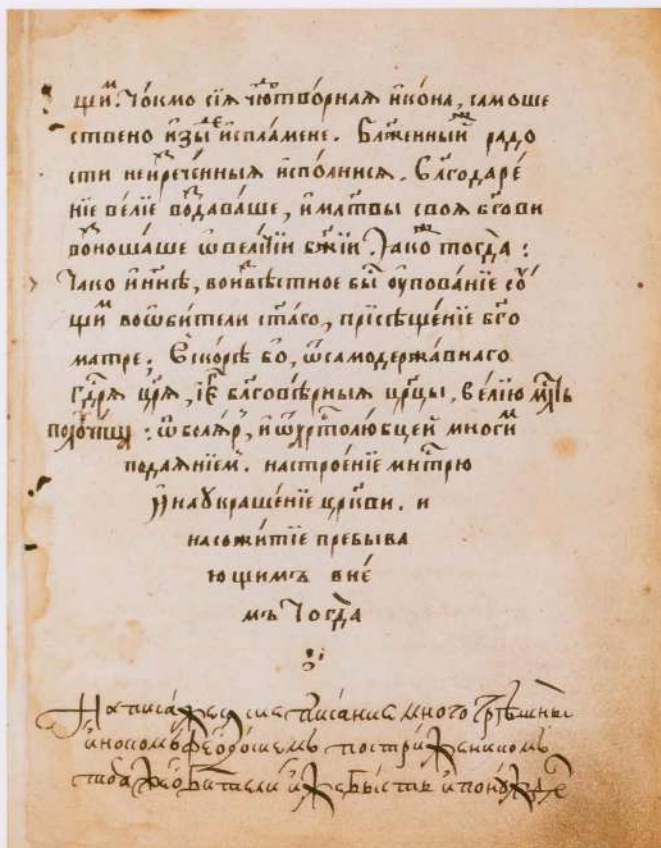 щи҇м. То́кмо сїѧ чю҇дтво́рнаѧ и҆ко́на, самоше
ствено и҆зы҇де и҆спламене. Бл҃же́нный҇ радо
сти неи҆зрече́нныѧ и҆спо́лнисѧ. Бл҃годаре́
нїе ве́лїе во҇здава́ше, и҆ мл҃твы своѧ бг҃ови
во҇зноша́ше ѡ҆вели́чїи бж҃їи. Jако тогда҇ :
Jако и҆ нн҃ѣ, вои҆звѣ́стное бы҇ оупова́нїе сꙋ́
щи҇м воѡ҆би́тели ст҃аго, прїсѣще́нїе бг҃о
матре; Вско́рѣ бо, ѿ самодержа́внаго
гдⷭ҇рѧ цр҃ѧ, и҆ бл҃говѣ́рныѧ цр҃цы, ве́лїю мл҃ть
: ѿ болѧ҇р, и҆ ѿ хрⷭ҇толю́бцей мно́ги҇м
подаѧ́нїем. настрое́нїе мн҃трю
И҆ наꙋкраше́нїе цр҃кви. и
насожи́тїе пребыва
ющимъ вне́
мъ Тогда҇
Написа́ же сѧ сие писа́ние много грѣ́шны
и҆ноком ѳео҆до́сиемъ постри́жеником
тоѧ́ же о҆би́тели